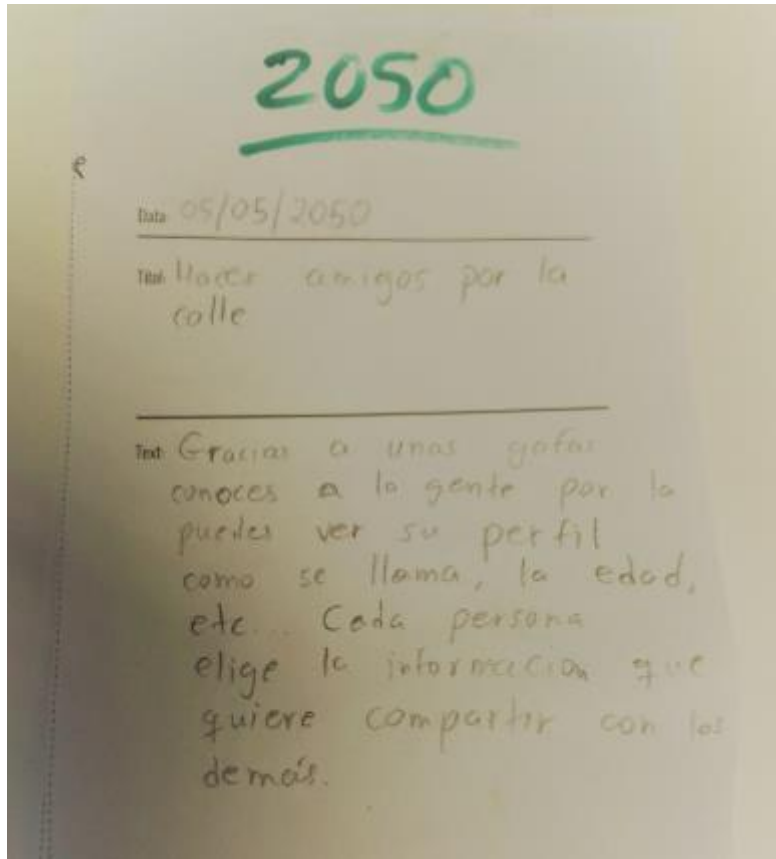 2050
e
Data: 05/05/2050
Títol: Hacer amigos por la
calle
Text: Gracias a unas gafas
conoces a la gente por la
puedes ver su perfil
como se llama, la edad,
etc... Cada persona
elige la informacion que
quiere compartir con los
demás.